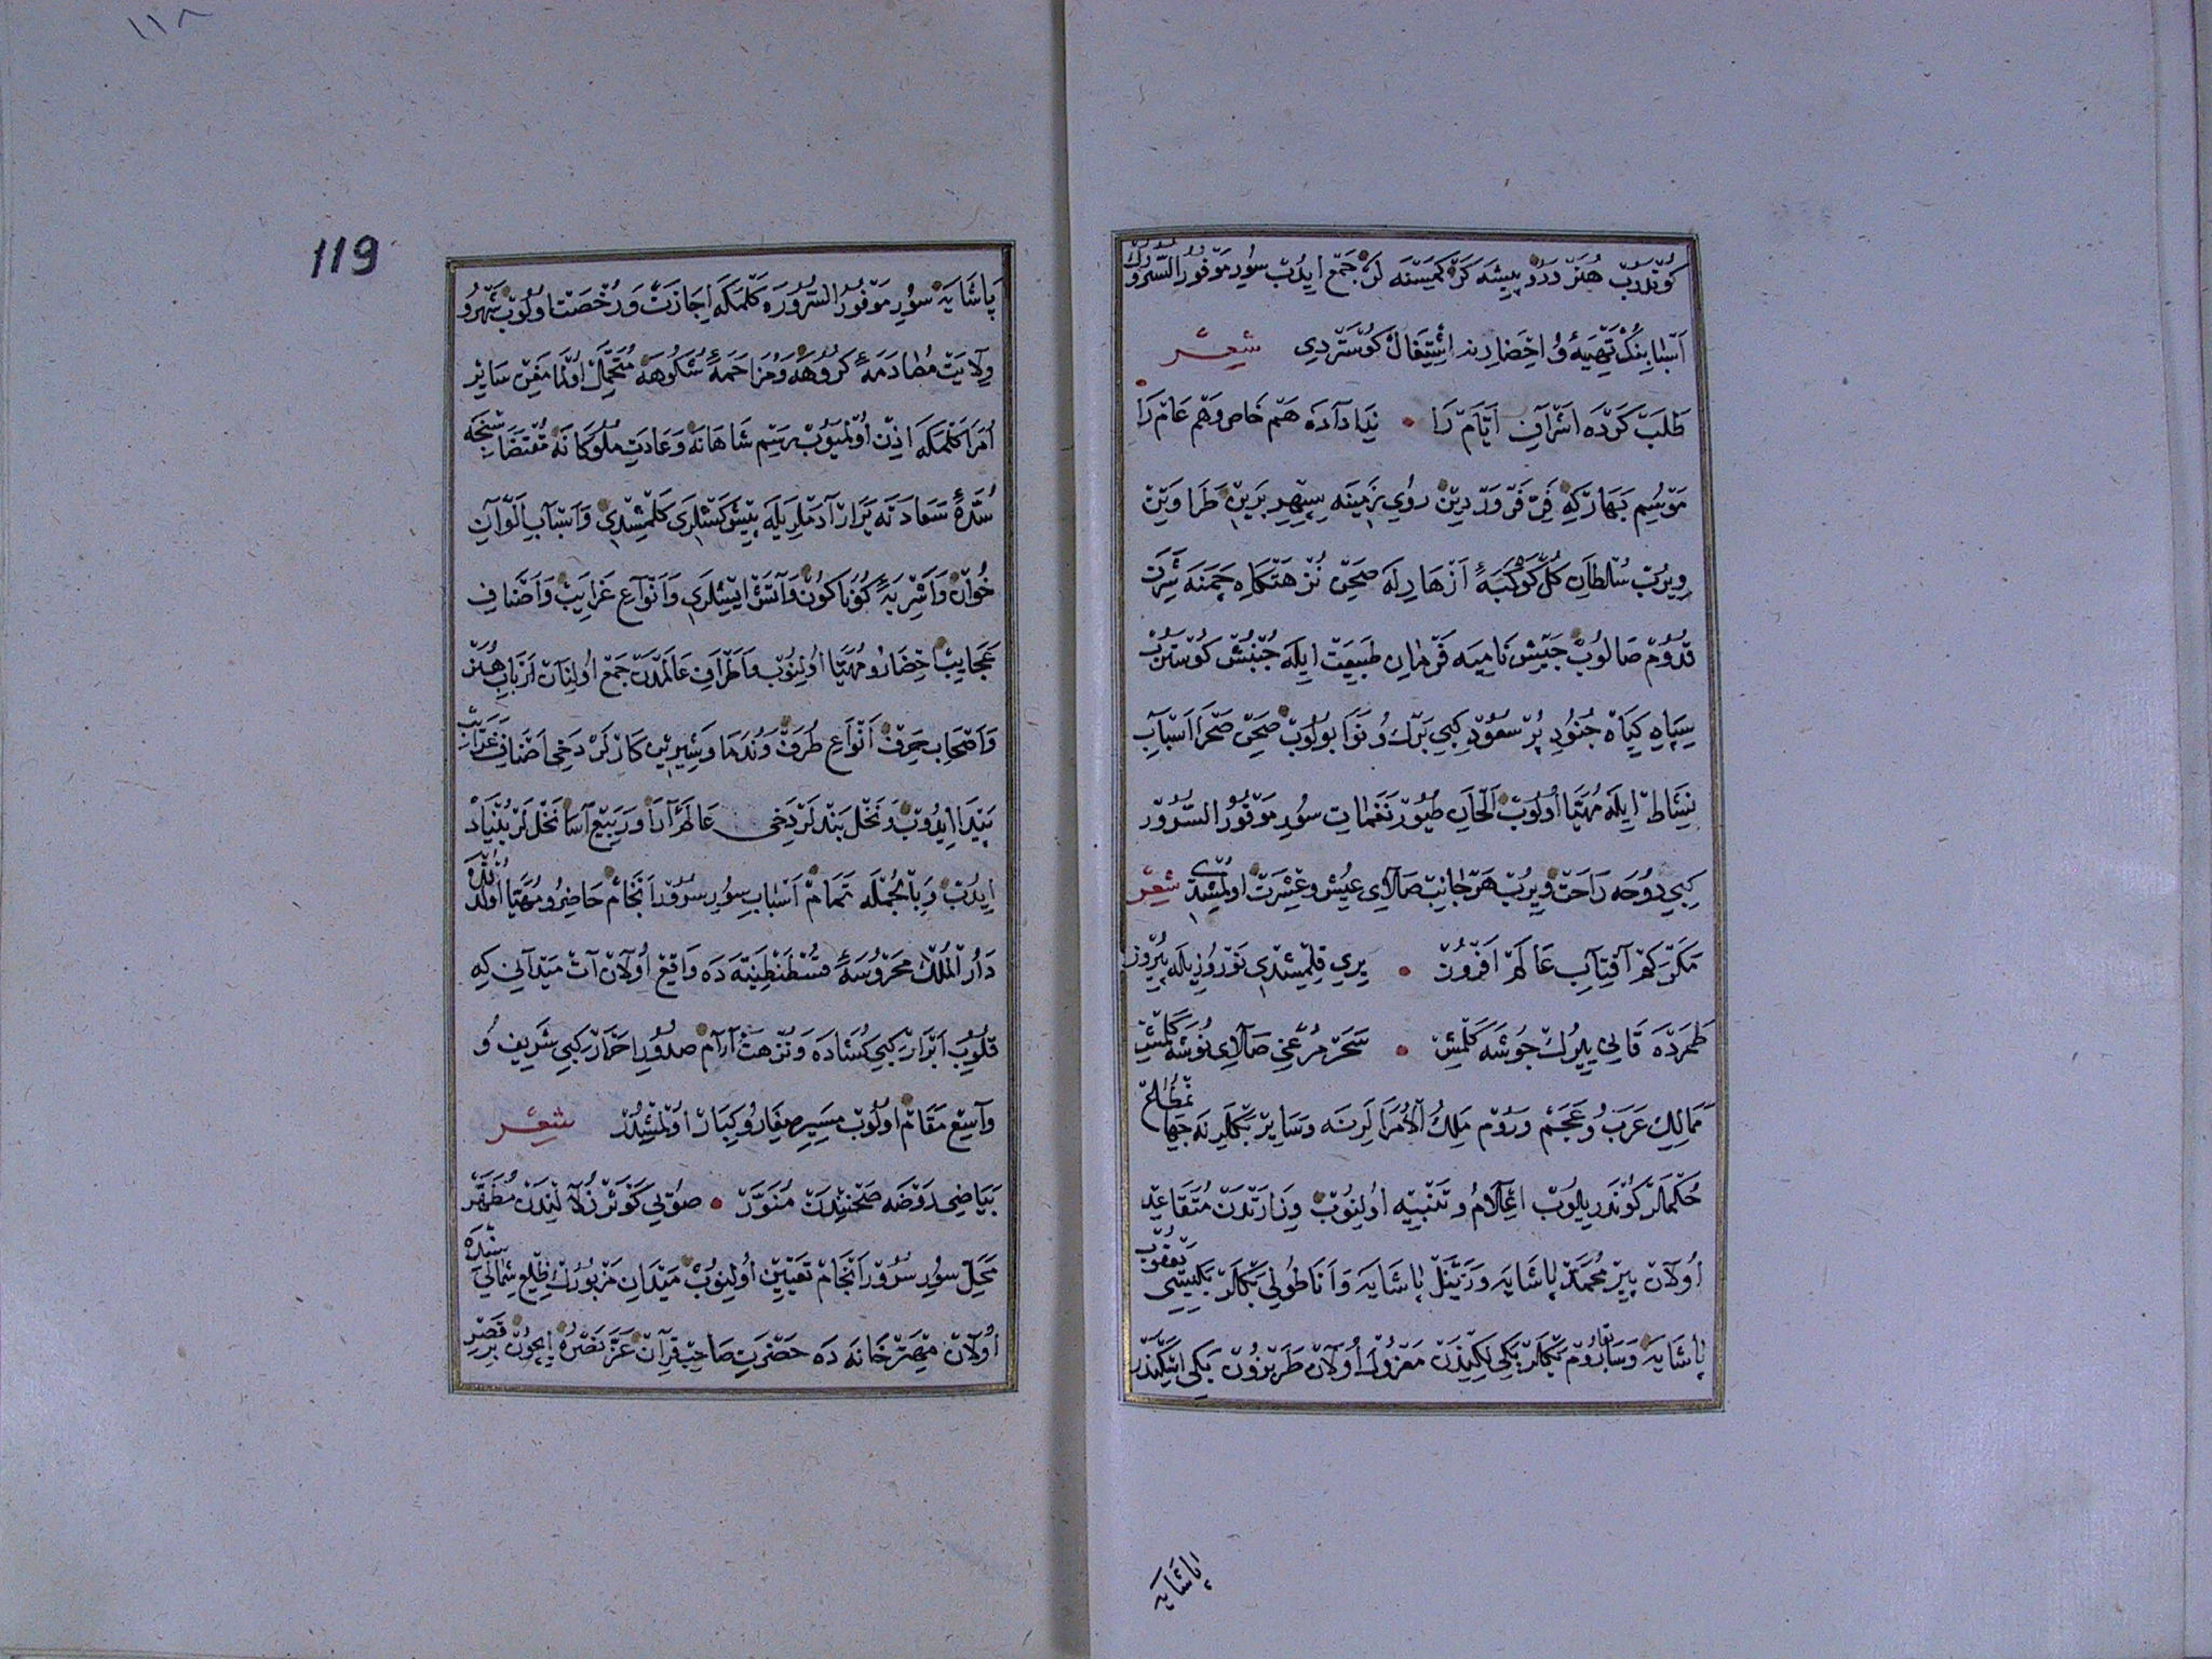 كوندروب هنرور و پيشه كر كمسنه لر جمع ايدوب سور موفور السرورك
اسبابنك تهيه و احضارنه اشتغال كوستردى شعر
طلب كرده اشراف ايام را • ندا داده هم خاص و هم عام را
موسم بهار كه فر فروردين روى زمينه سپهر برين طراوتن
ويروب سلطان كل كوكبۀ ازهارله صحن نزهتكاه چمنه شرف
قدوم صالوب جيش ناميه فرمان طبيعت ايله جنبش كوستروب
سپاه كياه جنود پر سعود كبى برك و نوا بولوب صحن صحرا اسباب
نشاط ايله مهيا اولوب الحان طيور نغمات سور موفور السرور
كبى روحه راحت ويروب هر جانب صلاى عيش و عشرت اولمشدى شعر
مكر كم آفتاب عالم افروز • يرى قلمشدى نوروزيله پيروز
طمرده قانى يرك جوشه كلمش • سحر مرغى صلاى نوشه كلمش
ممالك عرب و عجم و روم ملك الامرالرنه و ساير بكلرنه جهانمطاع
حكملر كوندريلوب اعلام و تنبيه اولنوب وزارتدن متقاعد
اولان پير محمد پاشايه و زينل پاشايه و اناطولى بكلربكيسى يعقوب
پاشايه و سابقا روم بكلربكى لكندن معزول اولان طربزون بكى اسكندر
پاشايه
119
١١٨
پاشايه سور موفور السروره كلمكه اجازت و رخصت اولوب شهر و
ولايت مصادمۀ كروهه و مزاحمۀ شكوهه متحمل اولمامغين ساير
امرا كلمكه اذن اولميوب رسم شاهانه و عادت ملوكانه مقتضاسنجه
سدۀ سعادته يرار آدملريله پيشكشلرى كلمشدى و اسباب الوان
خوان و اشربۀ كوناكون و آتش ايشلرى و انواع غرايب و اصناف
عجايب احضار و مهيا اولنوب و اطراف عالمدن جمع اولنان ارباب هنر
و اصحاب حرف انواع طرف و ندما و شيرين كارلر دخى اصناف غرايب
پيدا ايدوب و نخل بندلر دخى عالم آرا و ربيع آسا نخللر بنياد
ايدوب و بالجمله تمام اسباب سور سرور انجام حاضر و مهيا اولدقده
دار الملك محروسۀ قسطنطنيه ده واقع اولان آت ميدانى كه
قلوب ابرار كبى كشاده و نزهت آرام صدور احرار كبى شريف و
واسع مقام اولوب مسير صغار و كبار اولمشدر شعر
بياضى روضه صحنندن منور • صوى كوثر زلالندن مطهر
محل سور سرور انجام تعيين اولنوب ميدان مزبورك ضلع شماليسنده
اولان مهترخانه ده حضرت صاحب قران عز نصره ايچون بر قصر